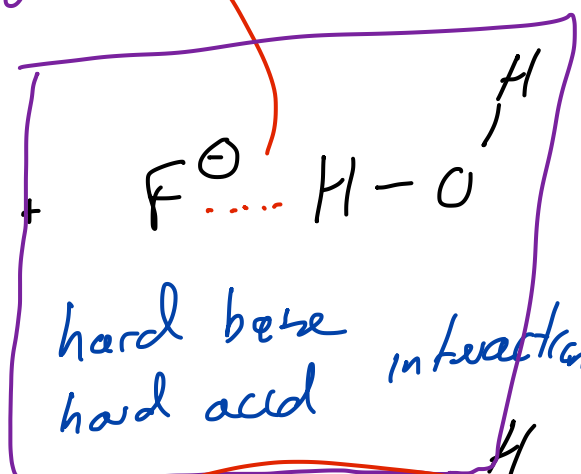 H
+ F⊖ ..... H – O
hard base
hard acid interaction
H